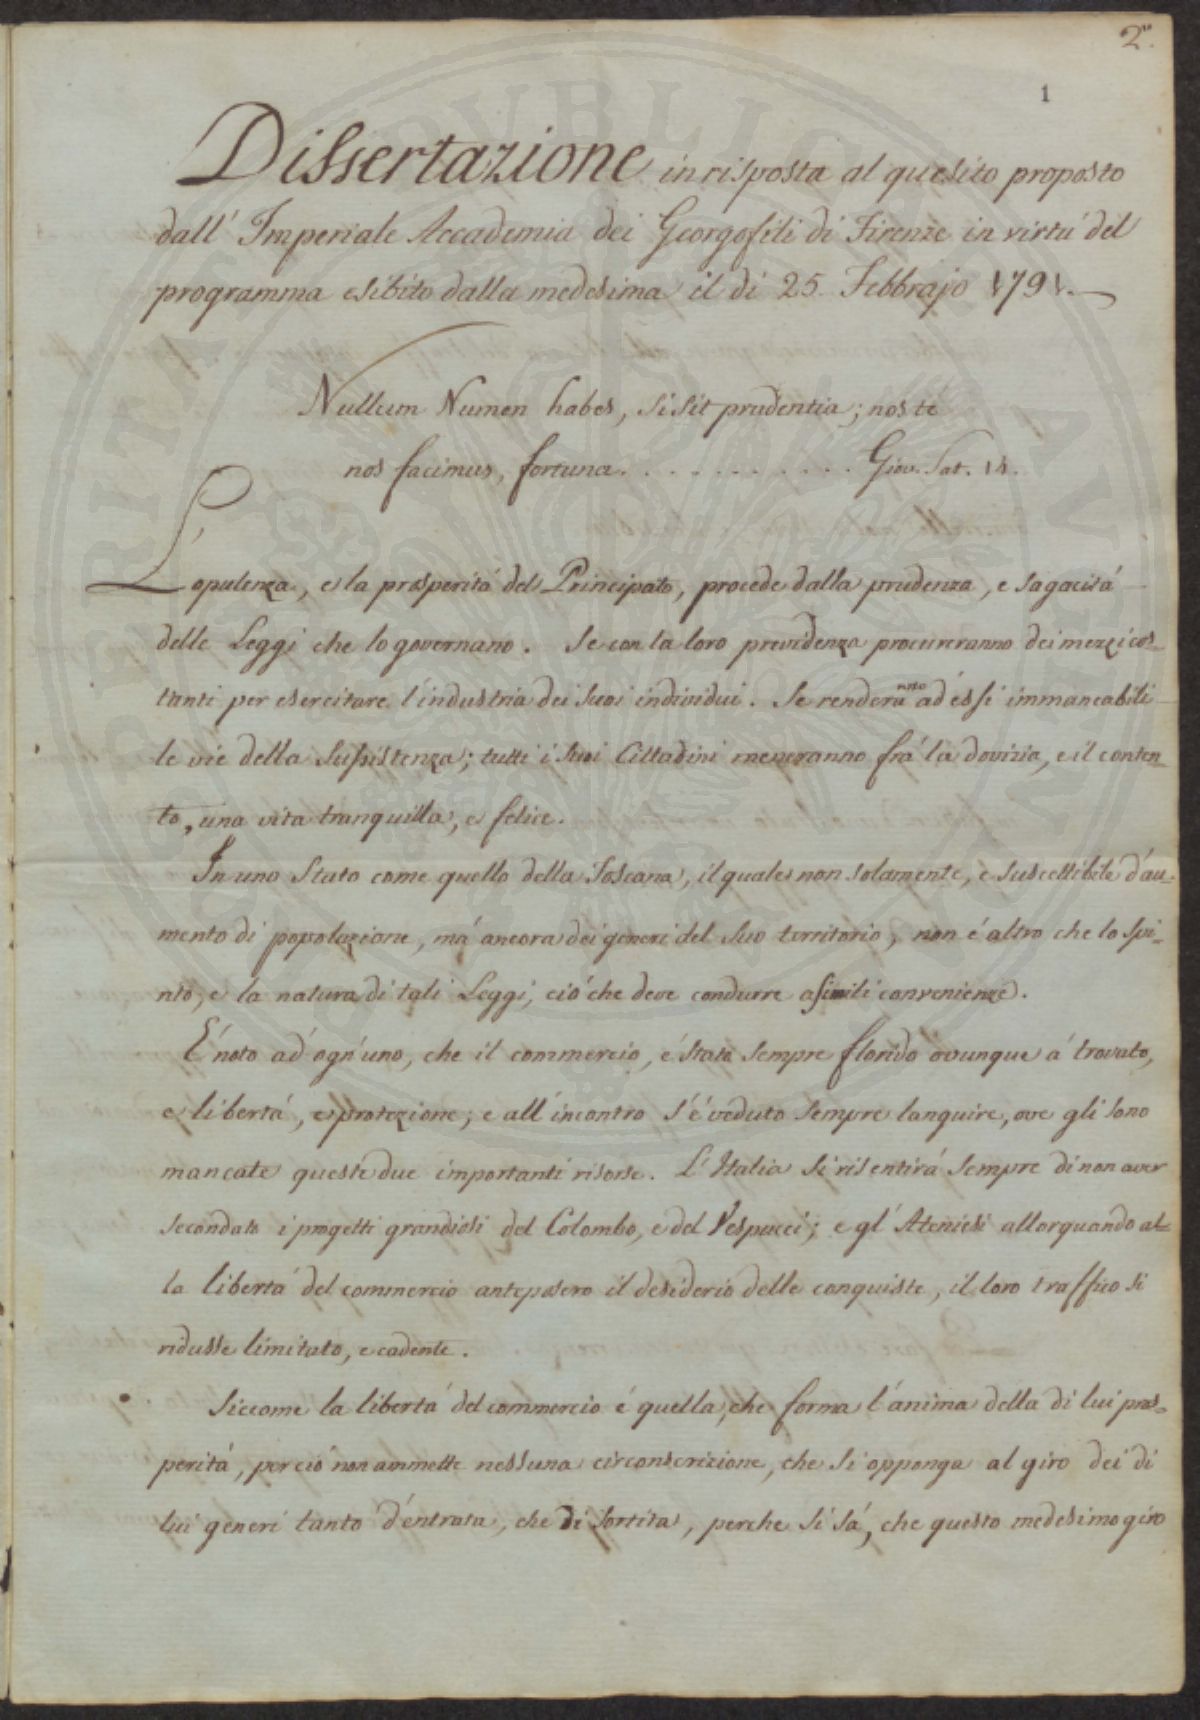 2°.
1
Dissertazione in risposta al quesito proposto
dall' Imperiale Accademia dei Georgofili di Firenze in virtú del
programma esibito dalla medesima il di 25 Febbrajo 1791.
Nullum Numen habes, si sit prudentia; nos te
nos facimus, fortuna. . . . . . . . . . . Giov. Sat. 14.
L'opulenza, e la prosperitá del Principato, procede dalla prudenza, e sagacitá
delle Leggi che lo governano. Se con la loro previdenza procureranno dei mezzi cos-
tanti per esercitare l'industria dei suoi individui. Se renderanno ad essi immancabili
le vie della sussistenza; tutti i suoi Cittadini meneranno frá la dovizia, e il conten-
to, una vita tranquilla, e felice.
In uno Stato come quello della Toscana, il quale non solamente, e suscettibile d'au-
mento di popolazione, má ancora dei generi del suo territorio, non é altro che lo spi-
rito, e la natura di tali Leggi, ció che deve condurre a simili convenienze.
É noto ad ogn'uno, che il commercio, é stato sempre florido ovunque á trovato,
e libertá, e protezione; e all' incontro s'é veduto sempre languire, ove gli sono
mancate queste due importanti risorse. L'Italia si risentirá sempre di non aver
secondato i progetti grandiosi del Colombo, e del Vespucci; e gl' Ateniesi allorquando al-
la libertá del commercio anteposero il desiderio delle conquiste, il loro traffico si
ridusse limitato, e cadente.
Siccome la libertá del commercio é quella, che forma l'anima della di lui pros-
peritá, perció non ammette nessuna circonscrizione, che si opponga al giro dei di
lui generi tanto d'entrata, che di sortita, perche si sá, che questo medesimo giro